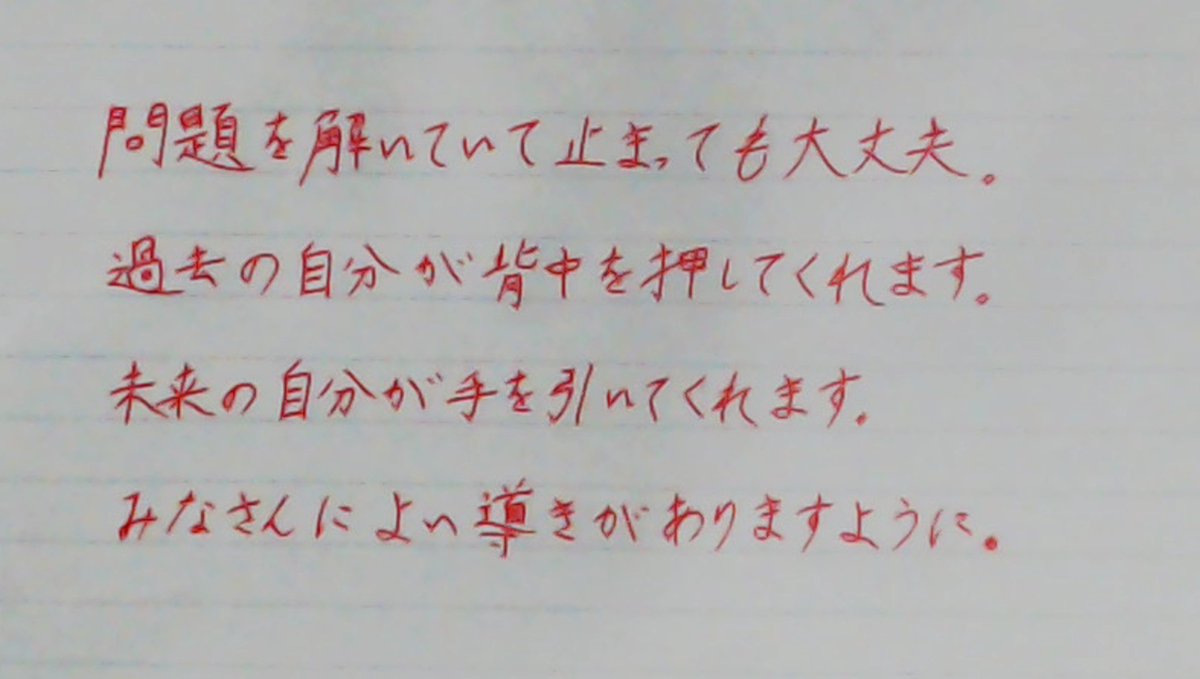 問題を解いていて止まっても大丈夫。
過去の自分が背中を押してくれます。
未来の自分が手を引いてくれます。
みなさんによい導きがありますように。